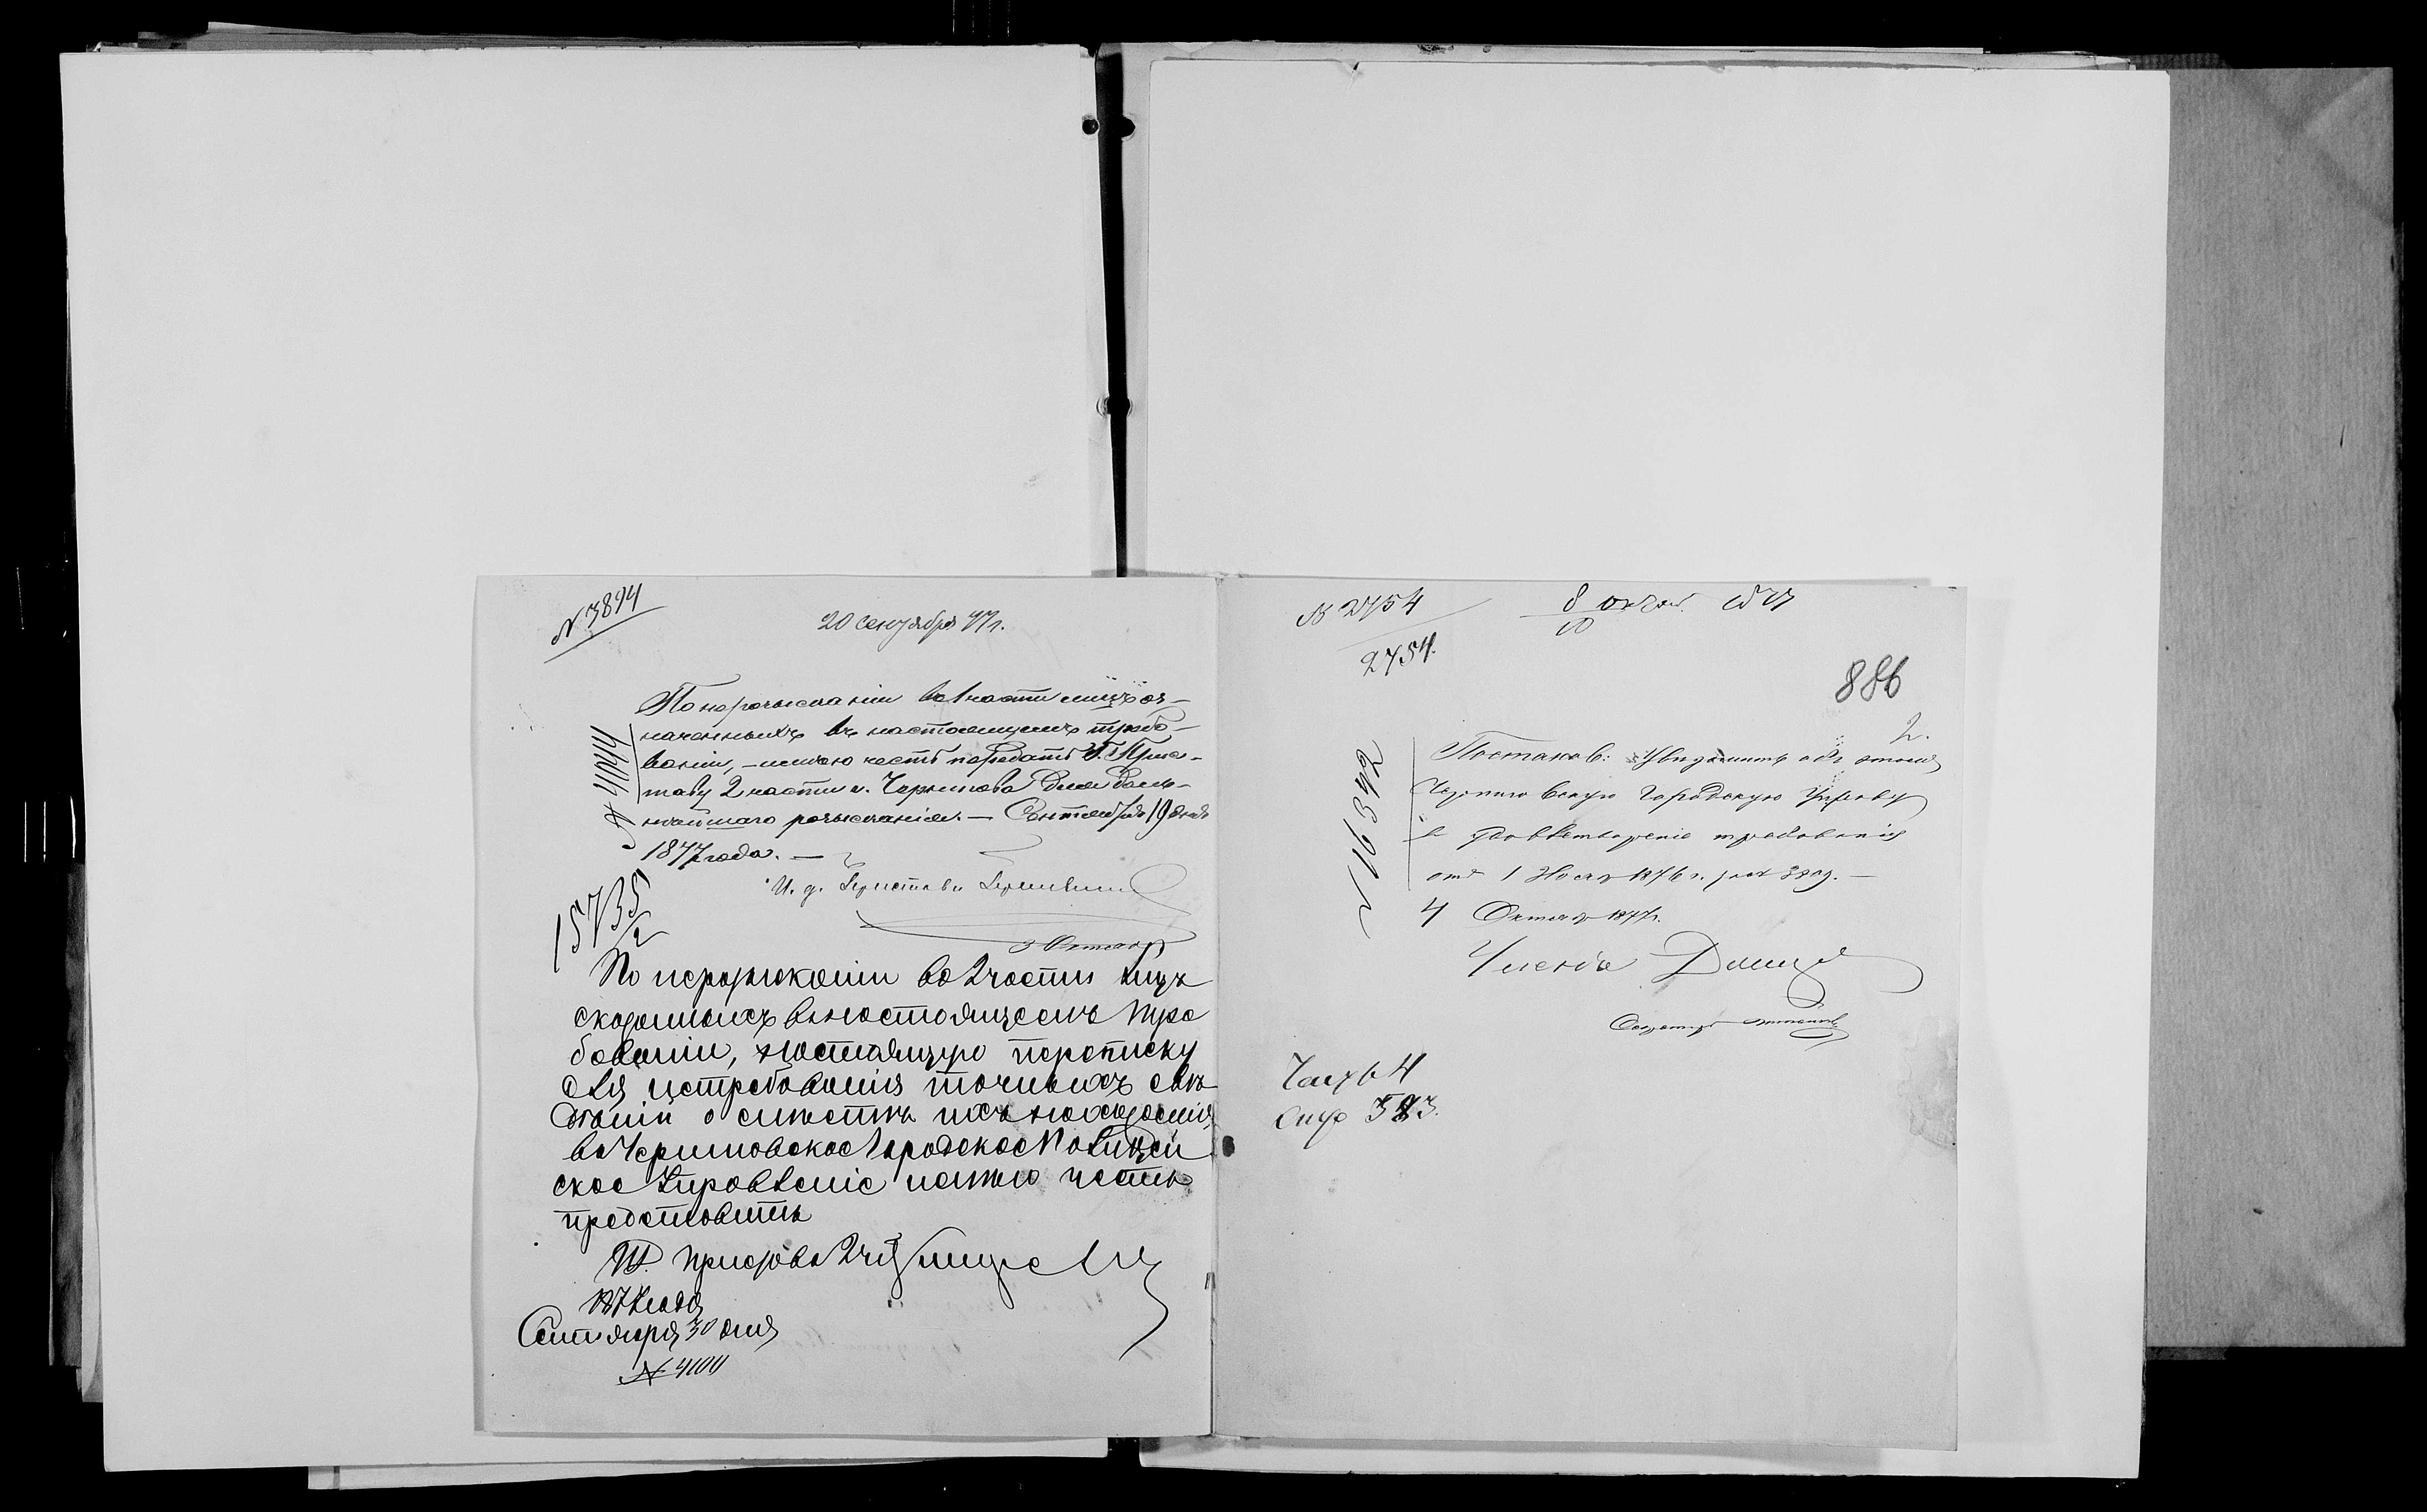 № 3894
20 сентября 77 г.
По нерозысканіи во 1 части лицъ оз-
наченныхъ въ настоящемъ требо-
ваніи, – имѣю честь передать Г. Прис-
таву 2 части г. Чернигова для даль-
нѣйшаго розысканія. — Сентября 19 дня
1877 года. —
№ 4044
И. д. Пристава
15735/2
3 Октября
По нерозысканіи во 2 части лицъ
сказанныхъ в настоящемъ тре
бованіи, настоящую переписку
для истребованія точныхъ свѣ
дѣній о мѣстѣ ихъ нахожденія,
въ Черниговское Городское Полицей
ское Управленіе имѣю честь
представить
Пристава 2 ч.
1877 года
Сентября 30 дня
№ 4100
№ 2754
2754.
8 октяб. 1877
10
886
2.
№ 16342
Постанов: Увѣдомить объ этомъ
Черниговскую Городскую Управу
въ удовлетвореніе требованія
отъ 1 Нояб 1876 г. за №
4 Октяб 1877 г.
Членъ
Секретарь
Часть 4
583.